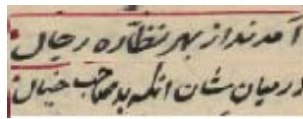 آمدند از بهر نظاره رجال
در میان شان آنکه بد صاحب خیال